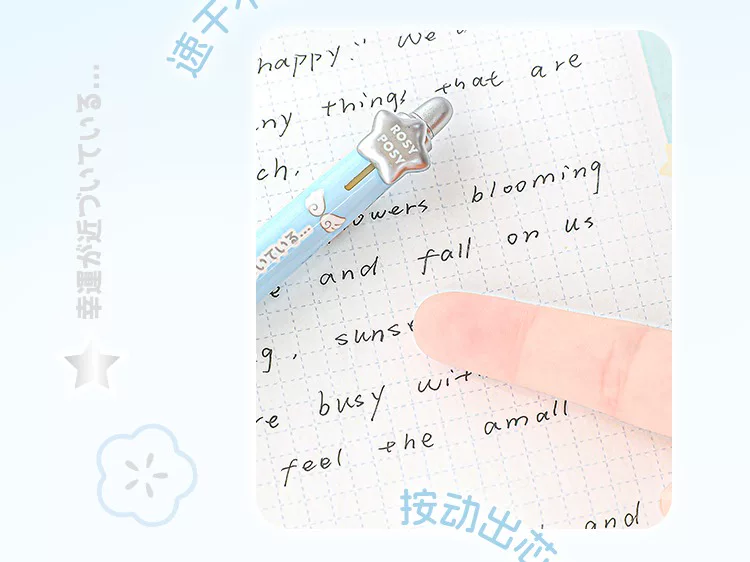 速干不
幸運が近づいている…
happy." We
ny things that are
ch.
ROSY
POSY
owers blooming
いている…
e and fall on us
g, suns
re busy wit
feel the amall
按动出芯
and